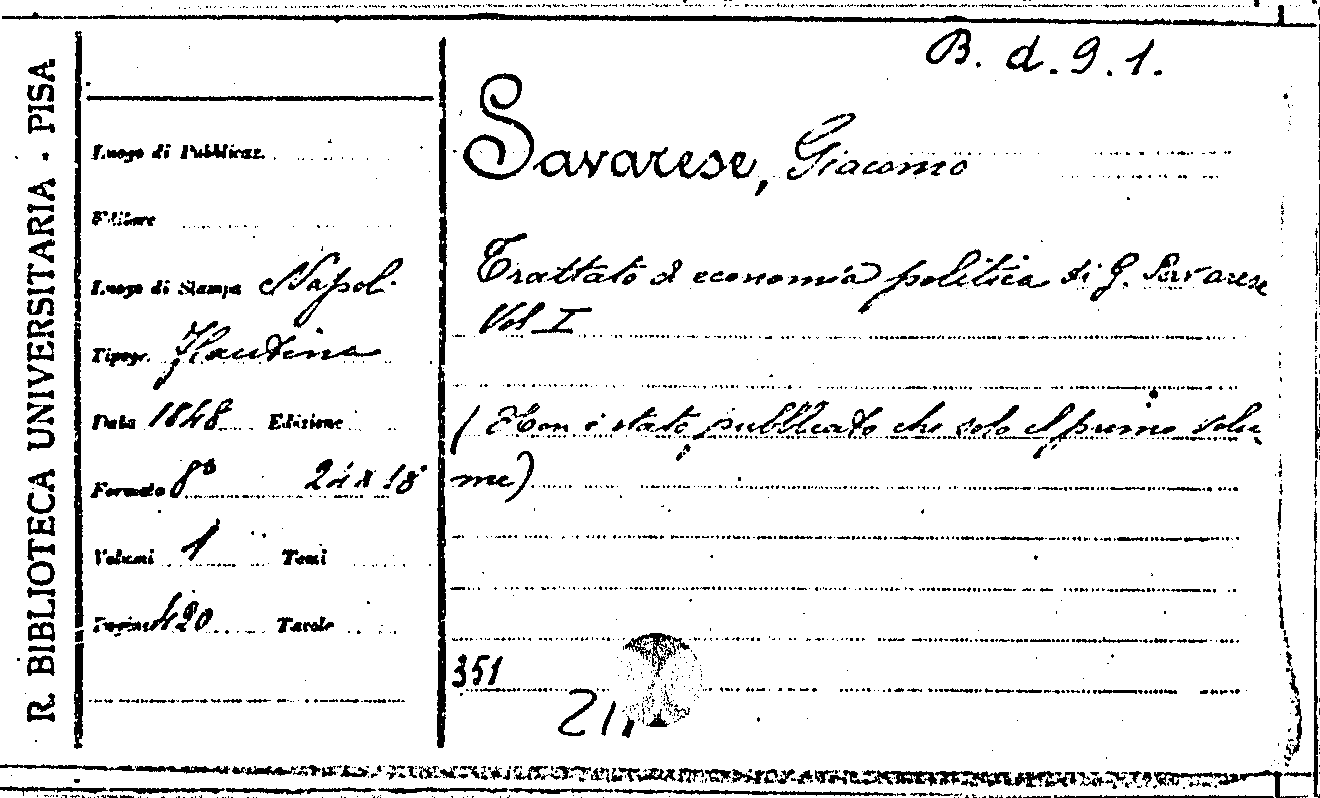 R. BIBLIOTECA UNIVERSITARIA - PISA
B. d. 9. 1.
Luogo di Pubblicaz.
Editore
Luogo di Stampa Napoli
Tipogr. Flautina
Data 1848 Edizione
Formato 8º 24 x 18
Volumi 1 Tomi
Pagine 420 Tavole
Savarese, Giacomo
Trattato di economia politica di G. Savarese
Vol I
(Non è stato pubblicato che solo il primo volu-
me)
351